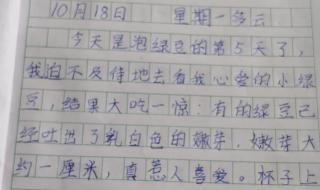 10月18日 星期一多云
今天是泡绿豆的第5天了,
我迫不及待地去看我心爱的小绿
豆,结果大吃一惊:有的绿豆已
经吐出了乳白色的嫩芽,嫩芽大
约一厘米,真惹人喜爱。杯子上